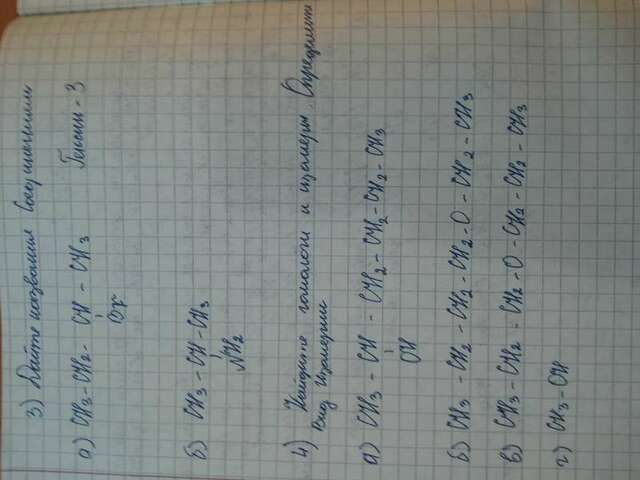 3) Дайте названия соединениям
а) CH3-CH2-CH-CH3 Гексин-3
Br
б) CH3-CH-CH3
NH2
4) Найдите гомологи и изомеры. Определите
вид изомерии
а) CH3-CH-CH2-CH2-CH2-CH3
OH
б) CH3-CH2-CH2-CH2-O-CH2-CH3
в) CH3-CH2-CH2-O-CH2-CH2-CH3
г) CH3-OH